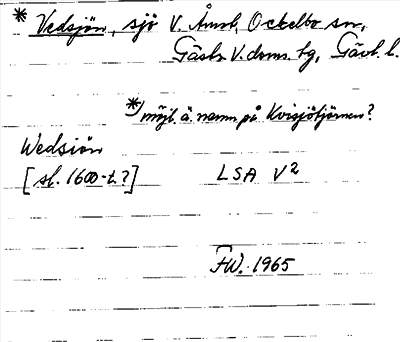 * Vedsjön, sjö V. Åmot, Ockelbo sn,
Gästr. V. doms. tg, Gävl. l.
*) möjl. ä. namn på Kvisjötjärnen?
Wedsiön
[sl. 1600-t.?] LSA V2
FW. 1965